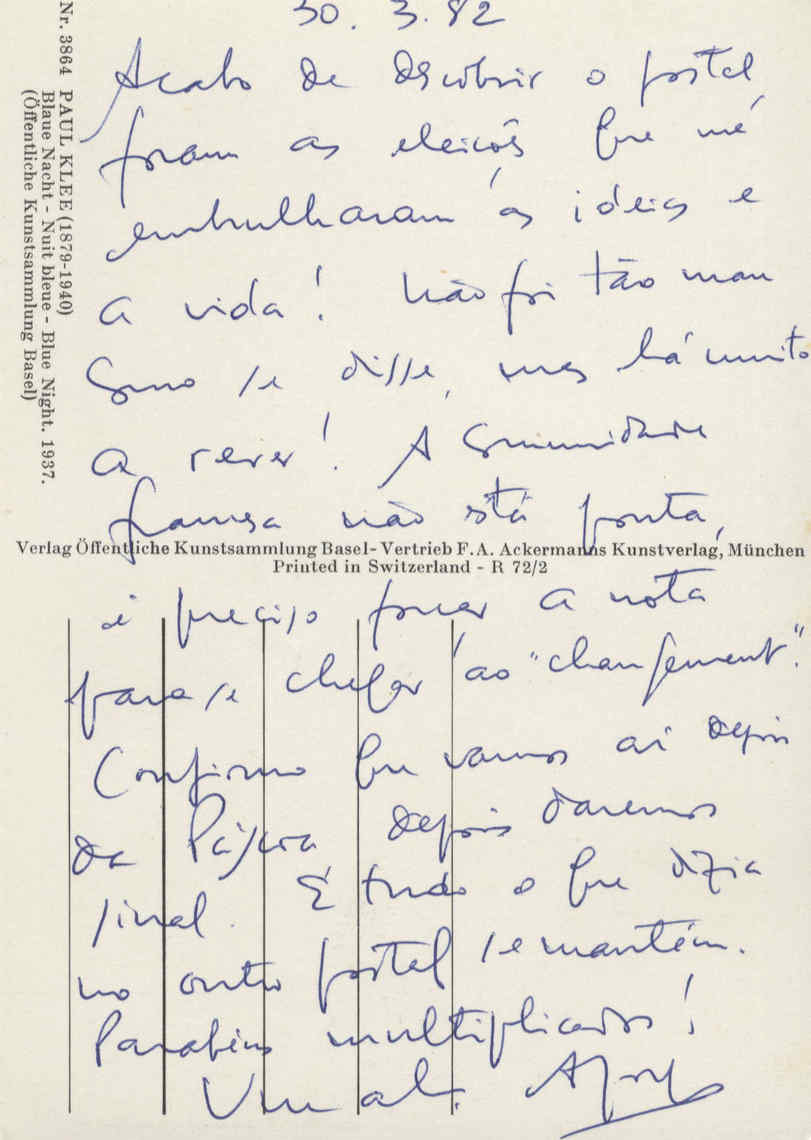 30. 3. 82
Acabo de descobrir o postal,
foram as eleições que me
embrulharam as ideias e
a vida! Não foi tão mau
como se disse, mas há muito
a rever! A comunidade
francesa não está pronta,
é preciso forçar a nota
para se chegar ao "changement".
Confirmo que vamos aí depois
da Páscoa depois daremos
sinal. E tudo o que dizia
no outro postal se mantém.
Parabéns multiplicados!
Nr. 3864 PAUL KLEE (1879-1940)
Blaue Nacht - Nuit bleue - Blue Night. 1937.
(Öffentliche Kunstsammlung Basel)
Verlag Öffentliche Kunstsammlung Basel - Vertrieb F. A. Ackermanns Kunstverlag, München
Printed in Switzerland - R 72/2